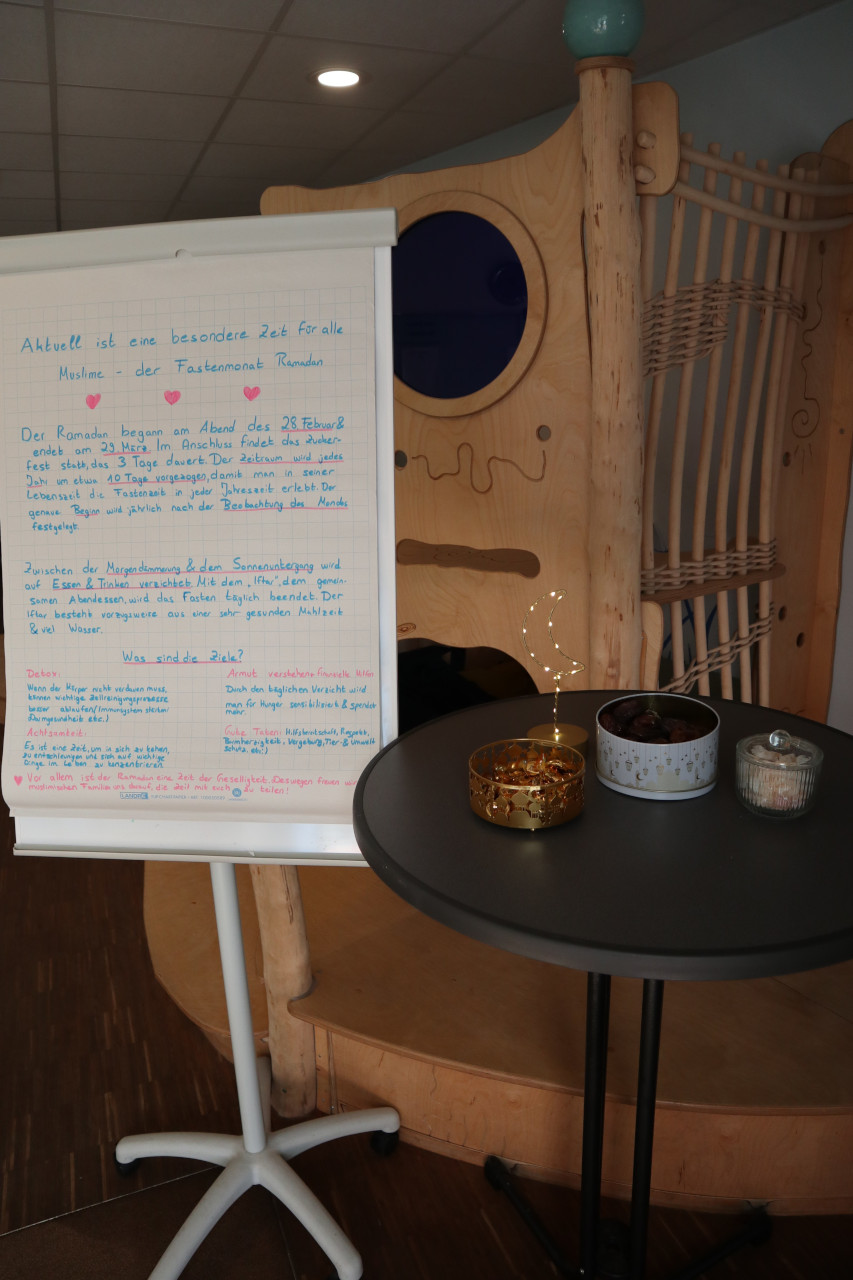 Aktuell ist eine besondere Zeit für alle
Muslime - der Fastenmonat Ramadan
Der Ramadan begann am Abend des 28. Februar &
endet am 29. März. Im Anschluss findet das Zucker-
fest statt, das 3 Tage dauert. Der Zeitraum wird jedes
Jahr um etwa 10 Tage vorgezogen, damit man in seiner
Lebenszeit die Fastenzeit in jeder Jahreszeit erlebt. Der
genaue Beginn wird jährlich nach der Beobachtung des Mondes
festgelegt.
Zwischen der Morgendämmerung & dem Sonnenuntergang wird
auf Essen & Trinken verzichtet. Mit dem "Iftar", dem gemein-
samen Abendessen, wird das Fasten täglich beendet. Der
Iftar besteht vorzugsweise aus einer sehr gesunden Mahlzeit
& viel Wasser.
Was sind die Ziele?
Detox:
Wenn der Körper nicht verdauen muss,
können wichtige Zellreinigungsprozesse
besser ablaufen (Immunsystem stärken
Darmgesundheit etc.)
Achtsamkeit:
Es ist eine Zeit, um in sich zu kehren,
zu entschleunigen und sich auf wichtige
Dinge im Leben zu konzentrieren.
Armut verstehen + finanzielle Hilfen
Durch den täglichen Verzicht wird
man für Hunger sensibilisiert & spendet
mehr.
Gute Taten: Hilfsbereitschaft, Respekt,
Barmherzigkeit, Vergebung, Tier- & Umwelt
schutz, etc.)
Vor allem ist der Ramadan eine Zeit der Geselligkeit. Deswegen freuen wir
muslimischen Familien uns darauf, die Zeit mit euch zu teilen!
LANDRÉ